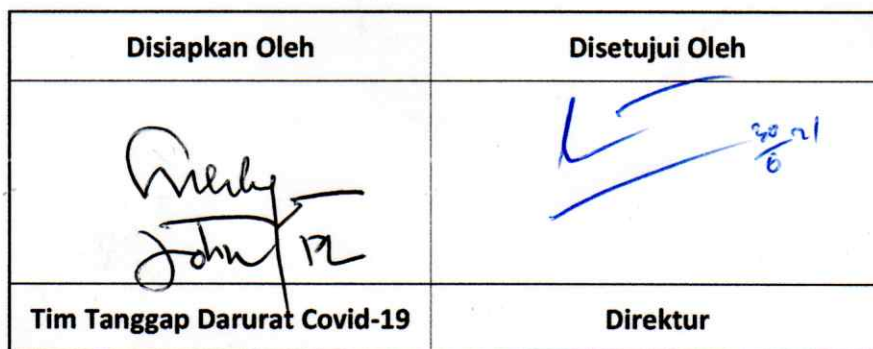 Disiapkan Oleh
Disetujui Oleh
John
30/6 21
Tim Tanggap Darurat Covid-19
Direktur